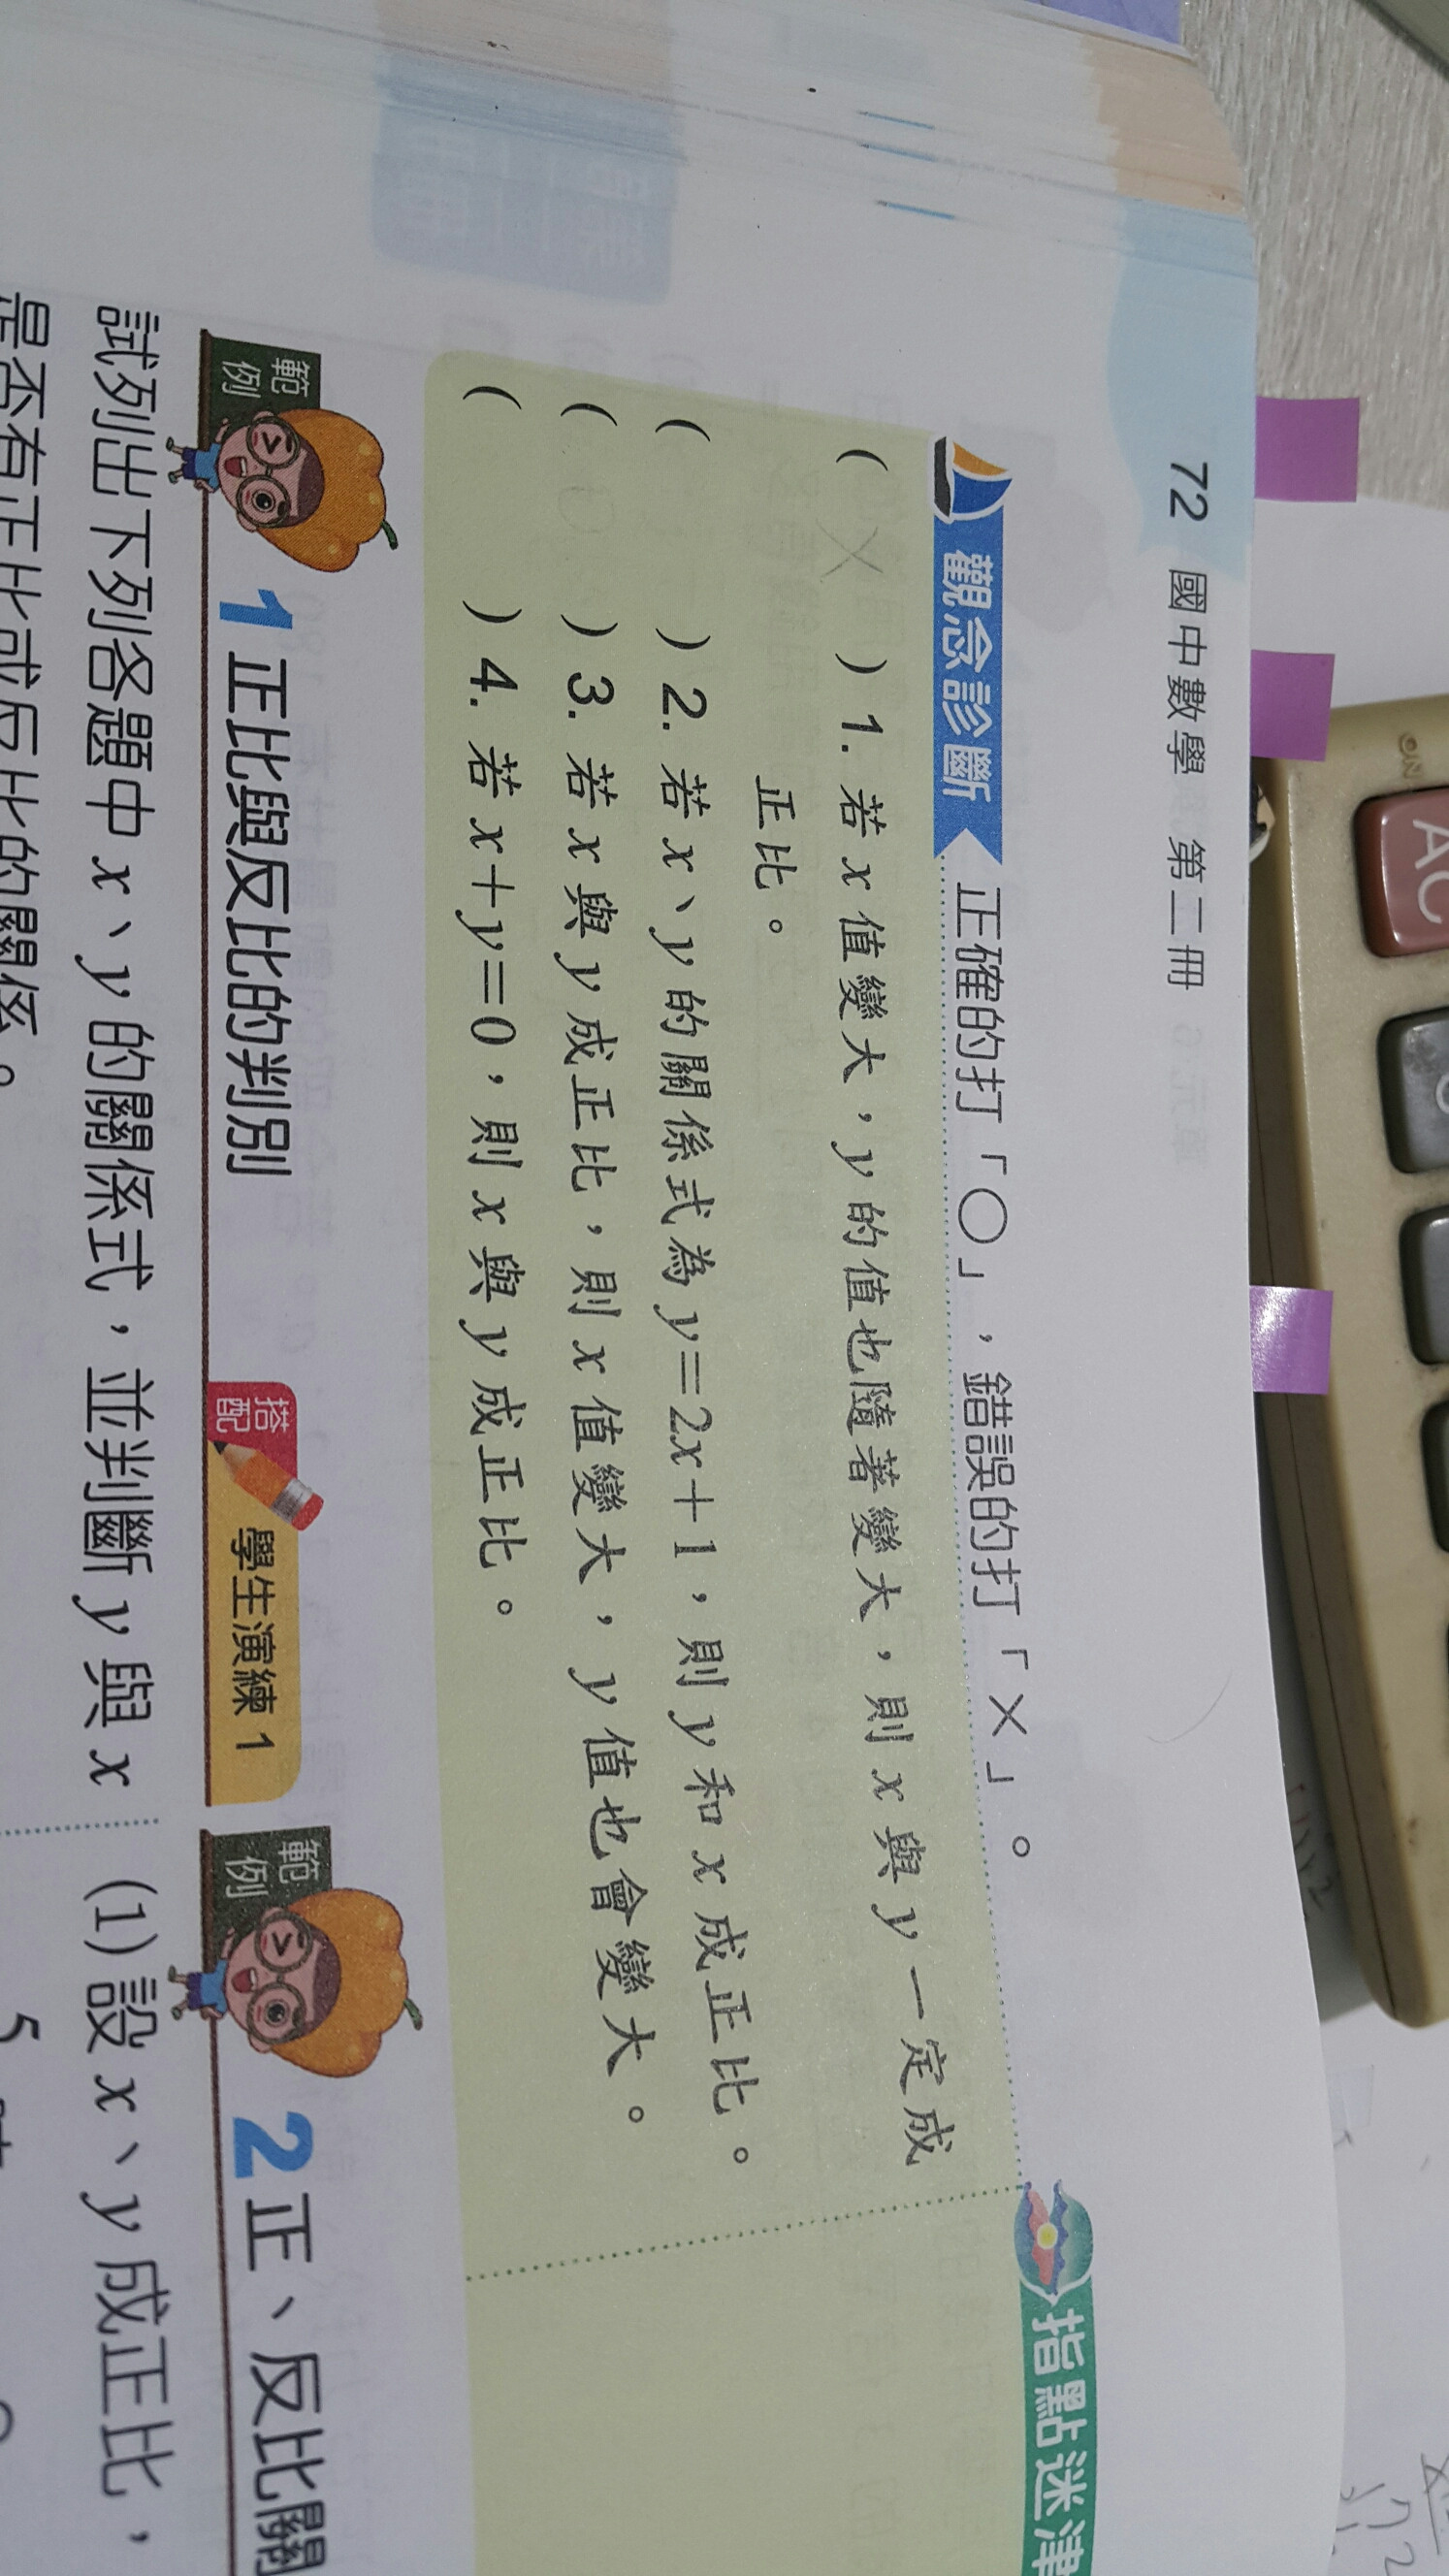 72 國中數學 第二冊
觀念診斷 正確的打「○」，錯誤的打「×」。
指點迷津
( × ) 1. 若 x 值變大，y 的值也隨著變大，則 x 與 y 一定成
正比。
( ) 2. 若 x、y 的關係式為 y=2x+1，則 y 和 x 成正比。
( ) 3. 若 x 與 y 成正比，則 x 值變大，y 值也會變大。
( ) 4. 若 x+y=0，則 x 與 y 成正比。
範例 1 正比與反比的判別
搭配 學生演練 1
試列出下列各題中 x、y 的關係式，並判斷 y 與 x
是否有正比或反比的關係。
範例 2 正、反比關
(1) 設 x、y 成正比，
AC